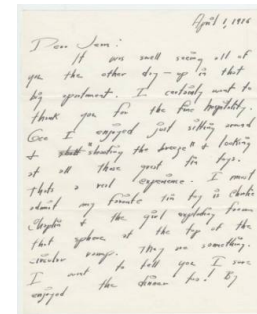 April 1, 1986
Dear Jam:
It was swell seeing all of
you the other day - up in that
big apartment. I certainly want to
thank you for the fine hospitality.
Gee I enjoyed just sitting around
& "shooting the breeze" & looking
at all those great tin toys.
Thats a real experience. I must
admit my favorite tin toy is Charlie
Chaplin & the girl exploding from
that sphere at the top of the
circular ramp. They are something.
I want to tell you I sure
enjoyed the dinner too! By